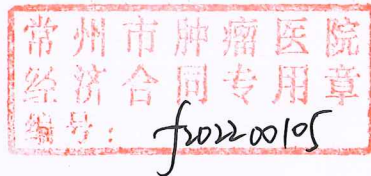 常州市肿瘤医院
经济合同专用章
编号：f202200105